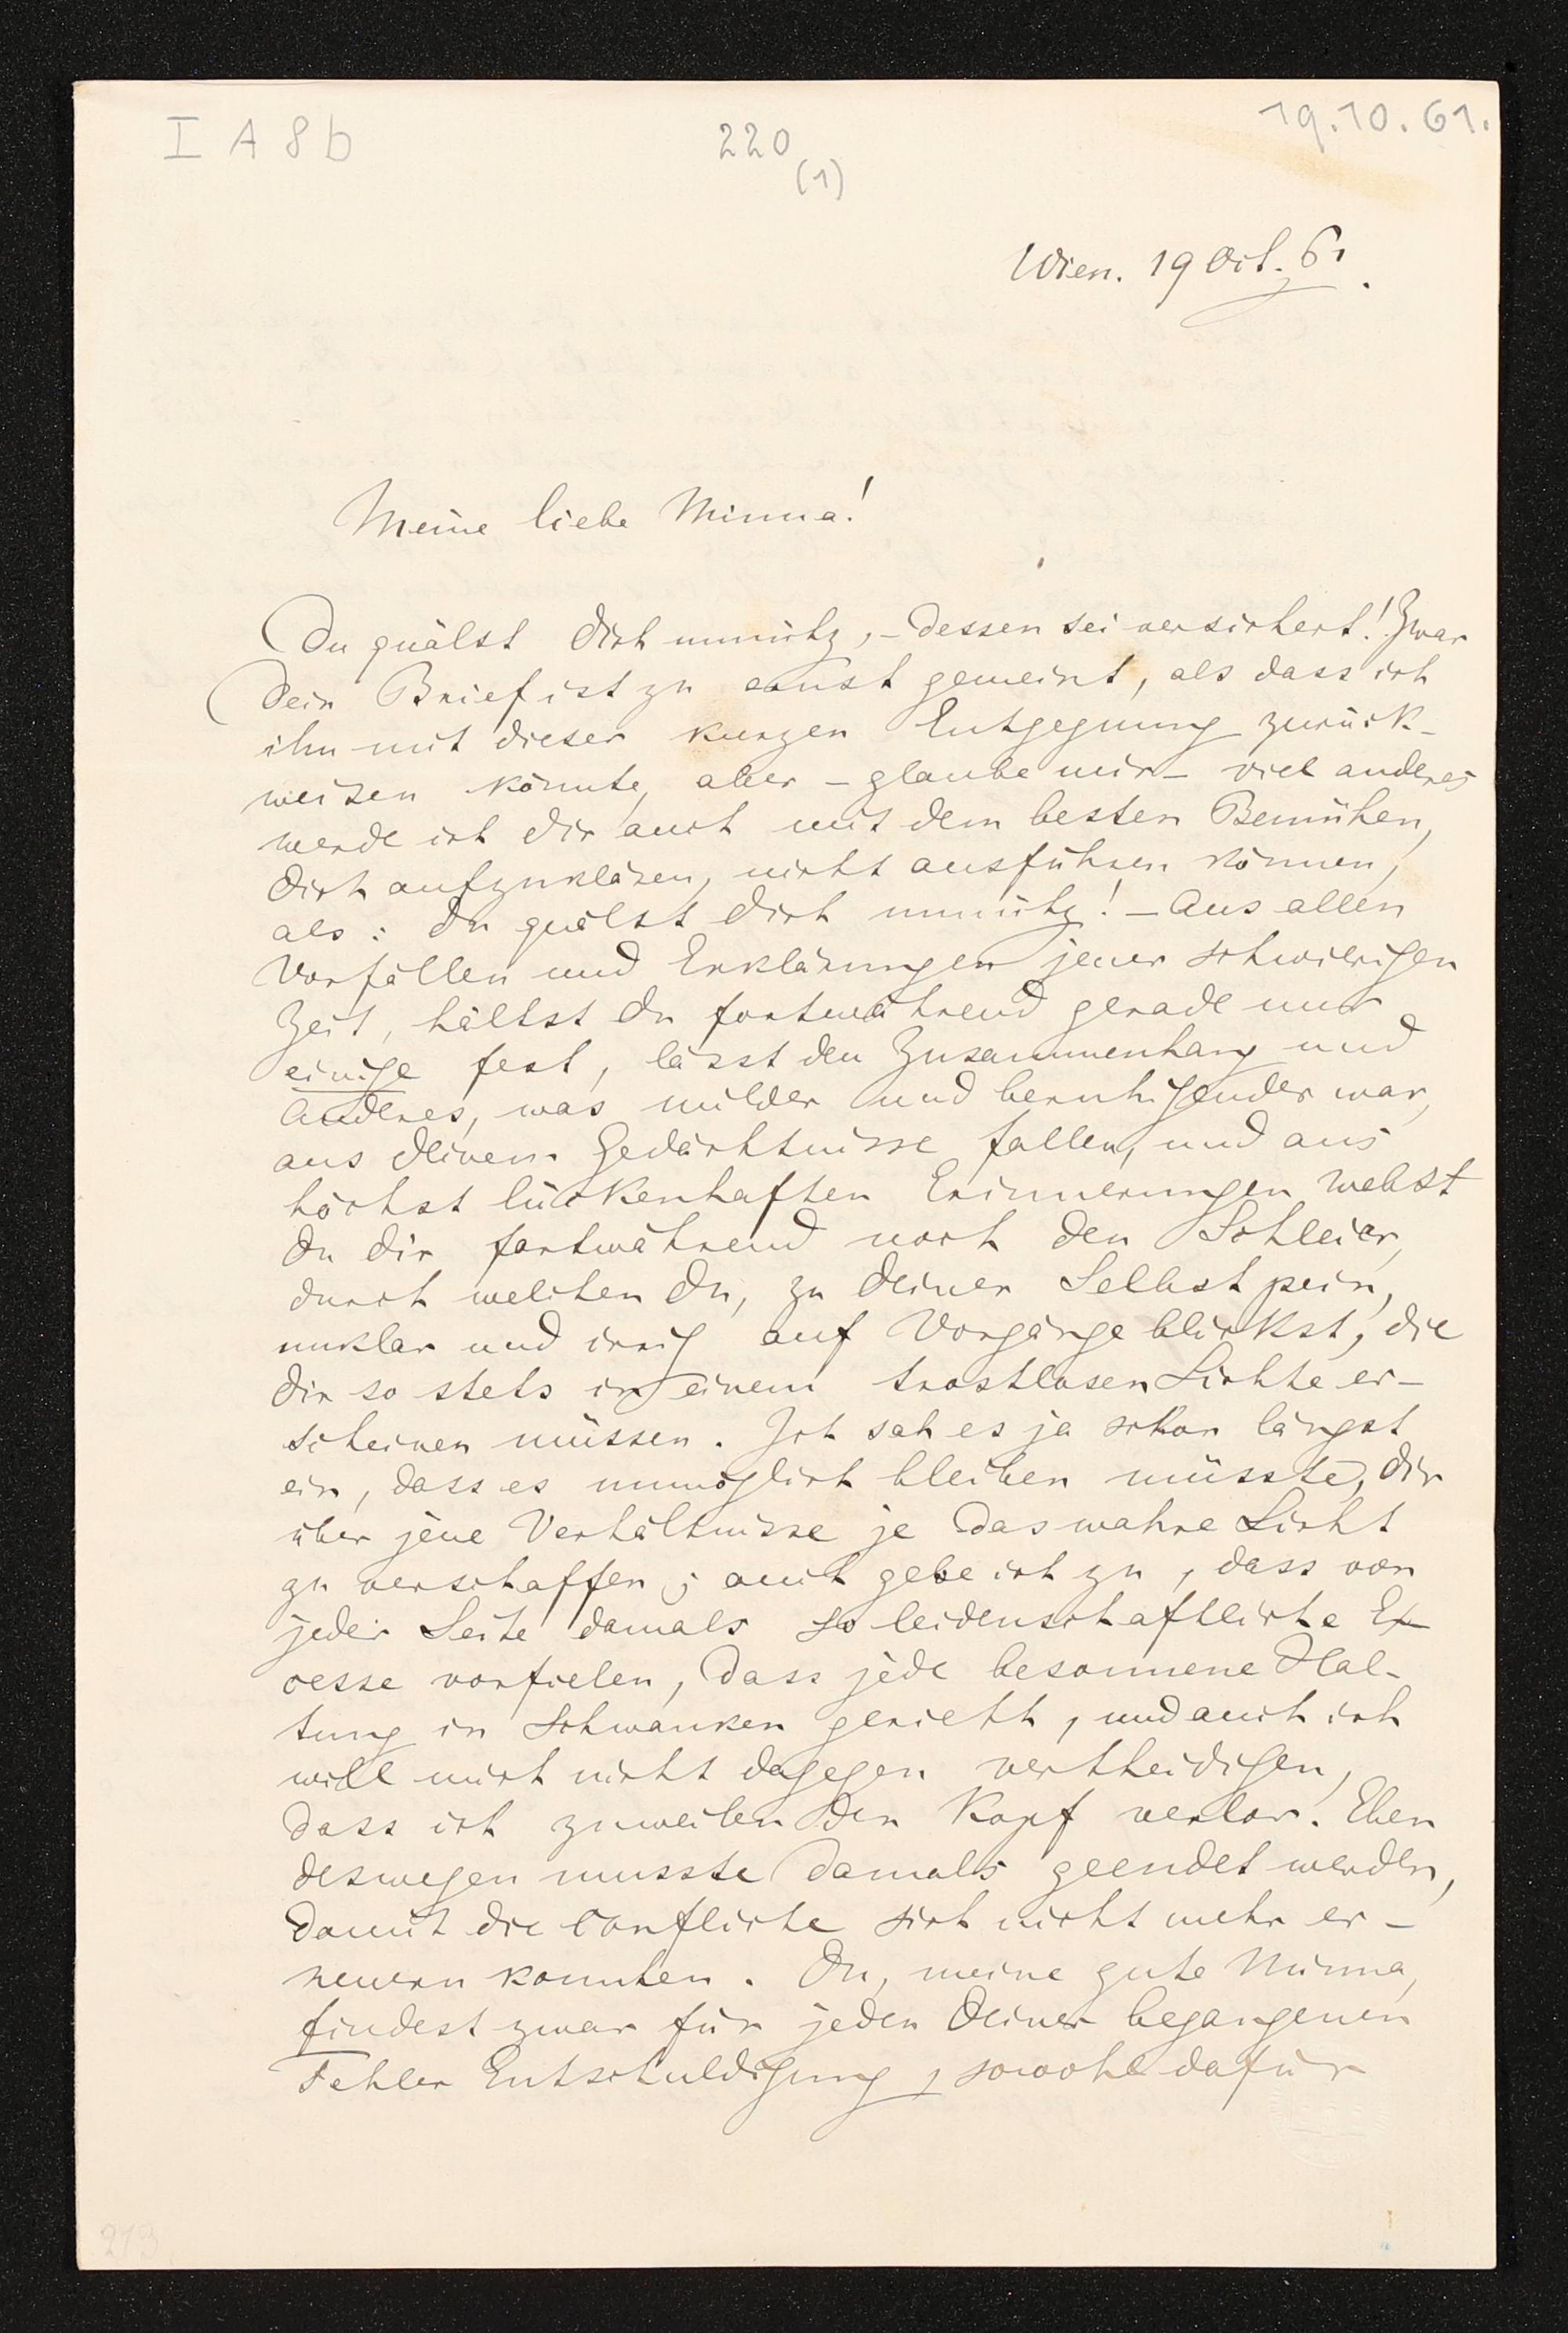 I A 8 b
220
(1)
19.10.61.
Wien. 19 Oct. 61.
Meine liebe Minna!
Du quälst Dich unnütz, – dessen sei versichert! Zwar
Dein Brief ist zu ernst gemeint, als dass ich
ihn mit dieser kurzen Entgegnung zurück-
weisen könnte, aber – glaube mir – viel anderes
werde ich Dir auch mit dem besten Bemühen,
Dich aufzuklären, nicht ausführen können,
als: Du quälst Dich unnütz! – Aus allen
Vorfällen und Erklärungen jener schwierigen
Zeit, hältst Du fortwährend gerade nur
einige fest, lässt den Zusammenhang und
Anderes, was milder und beruhigender war,
aus Deinem Gedächtnisse fallen, und aus
höchst lückenhaften Erinnerungen webst
Du Dir fortwährend noch den Schleier,
durch welchen Du, zu Deiner Selbstpein,
unklar und irrig auf Vorgänge blickst, die
Dir so stets in einem trostlosen Lichte er-
scheinen müssen. Ich sah es ja schon längst
ein, dass es unmöglich bleiben müsste, Dir
über jene Verhältnisse je das wahre Licht
zu verschaffen; auch gebe ich zu, dass von
jeder Seite damals so leidenschaftliche Ex-
cesse vorfielen, dass jede besonnene Hal-
tung in Schwanken gerieth, und auch ich
will mich nicht dagegen vertheidigen,
dass ich zuweilen den Kopf verlor. Eben
deswegen musste damals geendet werden,
damit die Conflicte sich nicht mehr er-
neuern konnten. Du, meine gute Minna,
findest zwar für jeden Deiner begangenen
Fehler Entschuldigung, sowohl dafür
213